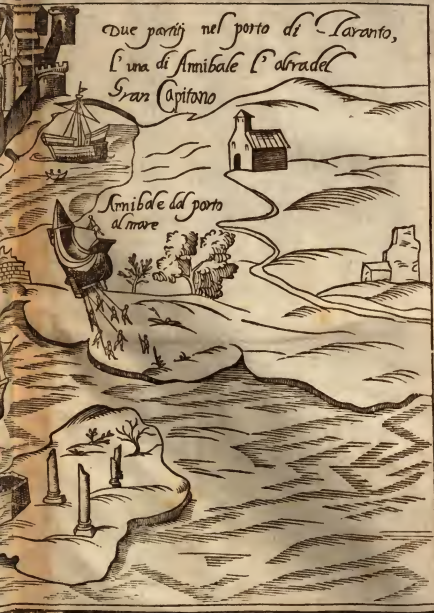 Due partiti nel porto di Taranto,
l'una di Annibale l'altra del
Gran Capitano
Annibale dal porto
al mare